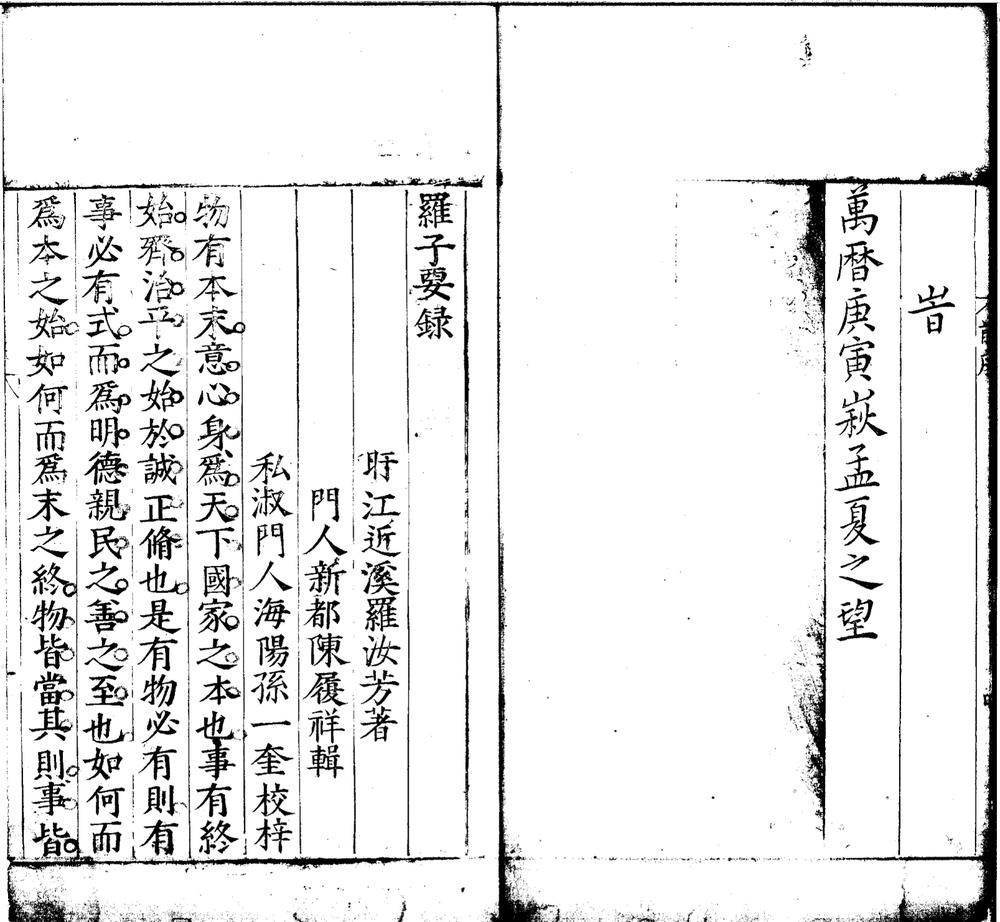 旹
萬曆庚寅嶔孟夏之望
羅子要録
盱江近溪羅汝芳著
門人新都陳履祥輯
私淑門人海陽孫一奎校梓
物有本末意心身爲天下國家之本也事有終
始齊治平之始於誠正脩也是有物必有則有
事必有式而爲明德親民之善之至也如何而
爲本之始如何而爲末之終物皆當其則事皆